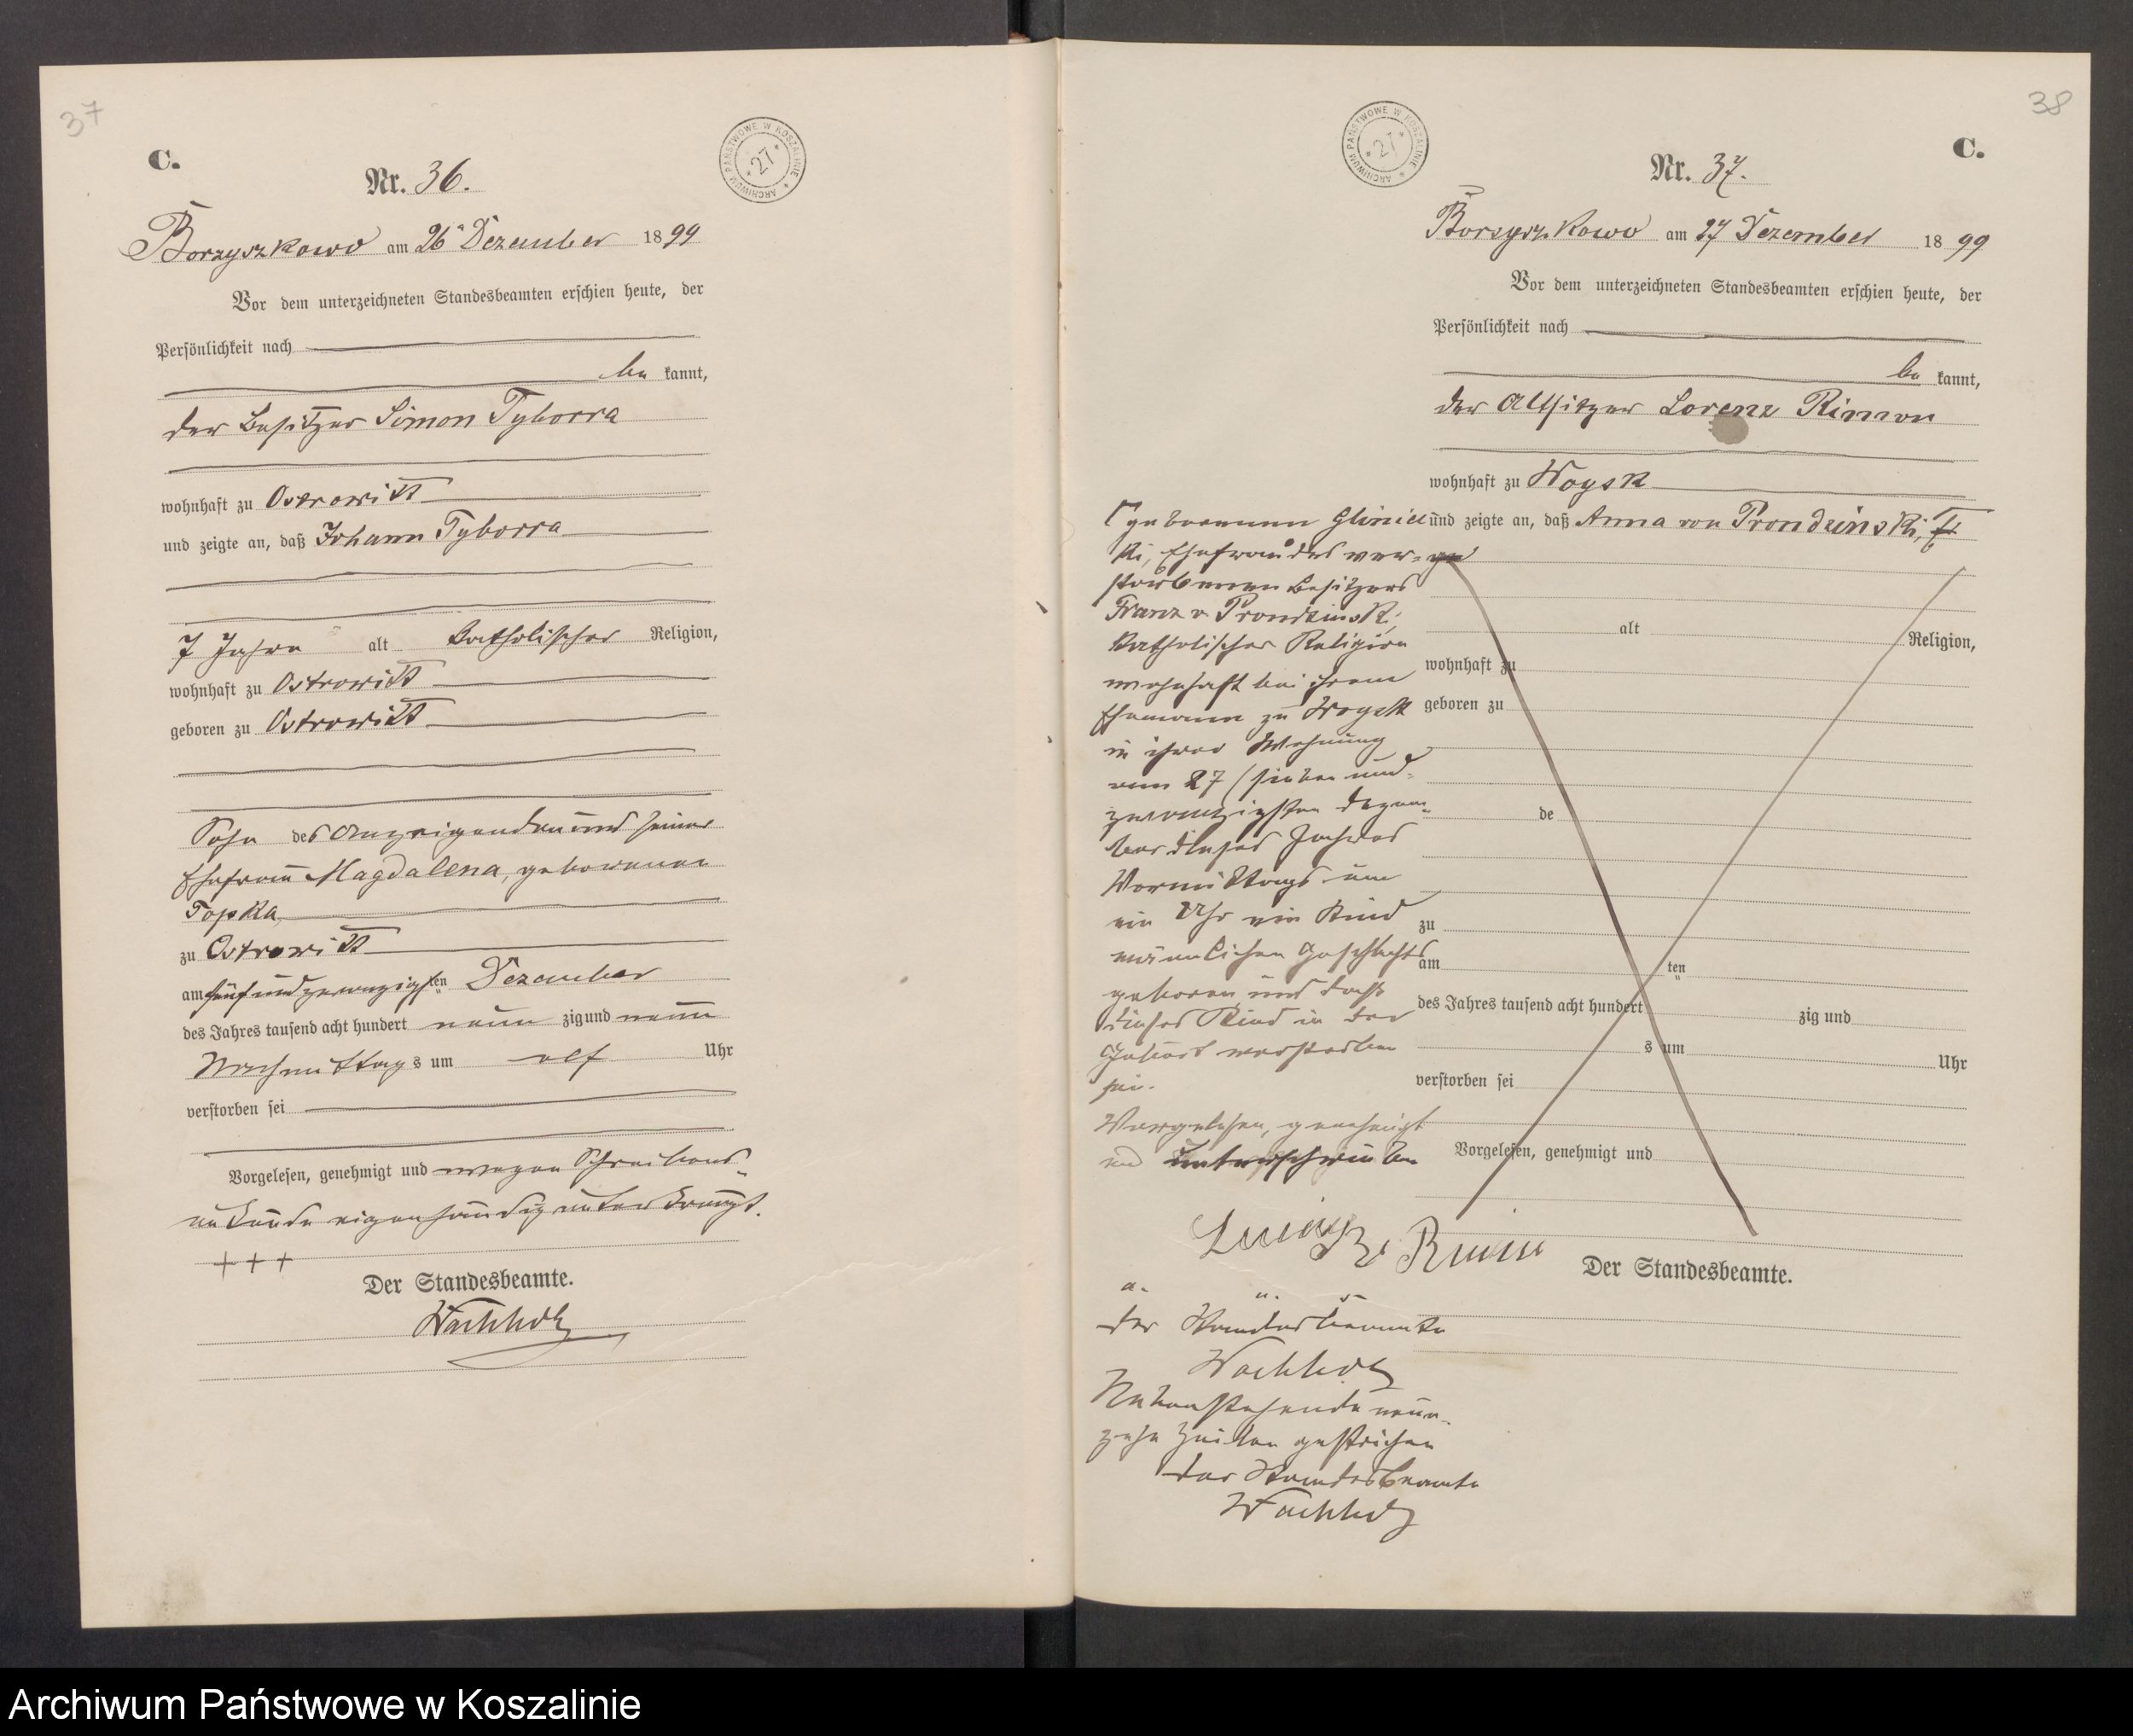 37
C.
ARCHIWUM PAŃSTWOWE W KOSZALINIE * 27 *
Nr. 36.
Borzyszkowo am 26ᵗ Dezember 1899
Vor dem unterzeichneten Standesbeamten erschien heute, der
Persönlichkeit nach
be kannt,
der Besitzer Simon Tyborra
wohnhaft zu Ostrowitt
und zeigte an, daß Johann Tyborra
7 Jahre alt katholischer Religion,
wohnhaft zu Ostrowitt
geboren zu Ostrowitt
Sohn des Anzeigenden und seiner
Ehefrau Magdalena, geborenen
Topka
zu Ostrowitt
am fünfundzwanzigsten Dezember
des Jahres tausend acht hundert neun zig und neun
Nachmittags um elf Uhr
verstorben sei
Vorgelesen, genehmigt und wegen Schreibens-
unkunde eigenhändig unterkreuzt.
+++
Der Standesbeamte.
Wachholz
38
C.
ARCHIWUM PAŃSTWOWE W KOSZALINIE * 27 *
Nr. 37.
Borzyszkowo am 27 Dezember 1899
Vor dem unterzeichneten Standesbeamten erschien heute, der
Persönlichkeit nach
be kannt,
der Altsitzer Lorenz Rimon
wohnhaft zu Woysk
und zeigte an, daß Anna von Prondzinski,
alt Religion,
wohnhaft zu
geboren zu
de
zu
am ten
des Jahres tausend acht hundert zig und
s um Uhr
verstorben sei
Vorgelesen, genehmigt und
Der Standesbeamte.
geborenen Glinic
ki, Ehefrau des ver-
storbenen Besitzers
Franz v Prondzinski,
katholischer Religion
wohnhaft bei ihrem
Ehemann zu Woysk
in ihrer Wohnung
am 27 (sieben und-
zwanzigsten Dezem-
ber dieses Jahres
Vormittags um
ein Uhr ein Kind
männlichen Geschlechts
geboren und daß
dieses Kind in der
Geburt verstorben
sei.
Vorgelesen, genehmigt
und unterschrieben
Rimon
a. u. s
der Standesbeamte
Wachholz
Nebenstehende neun-
zehn Zeilen gestrichen
der Standesbeamte
Wachholz
Archiwum Państwowe w Koszalinie